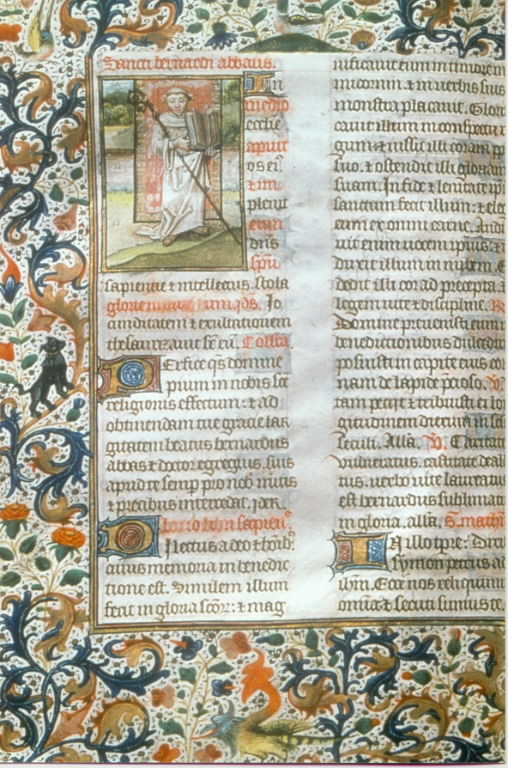 Sancti bernardi abbatis.
In
medio
ecclie
apuit
os ei⁹
& im
pleuit
eum
dns
spu
sapientie & intellectus. stola
glorie
cunditatem & exultationem
Collta
Perfice qs domine
pium in nobis sce
religionis effectum: & ad
obtinendam tue gracie lar
gitatem beatus bernardus
abbas & doctor egregius. suis
apud te semp pro nobis
& precibus intercedat. p
lectio libri sapien
Dilectus a deo & hoib⁹
cuius memoria in benedic
tione est. Similem illum
fecit in gloria scōr: & mag
nificauit eum in timorem
micorum. & in uerbis suis
monstra placauit. Glori
cauit illum in conspectu
gum: & iussit illi coram po
suo. & ostendit illi gloriam
suam. In fide & lenitate ip
sanctum fecit illum: & ele
eum ex omni carne. Audi
uit enim uocem ipsius: &
duxit illum in nubem. &
dedit illi cor ad precepta. &
legem uite & discipline.
Domine preuenisti eum
benedictionibus dulcedi
posuisti in capite eius co
nam de lapide p̄cioso.
tam peciit & tribuisti ei lo
gitudinem dierum in
seculi. Alla. V. Caritate
vulneratus. castitate deal
tus. uerbo uite laureatus
est bernardus sublimat
in gloria. alla. S. math
In illo tpre: Dixit
symon petrus ad
ihm. Ecce nos reliquim
omnia & secuti sumus te.